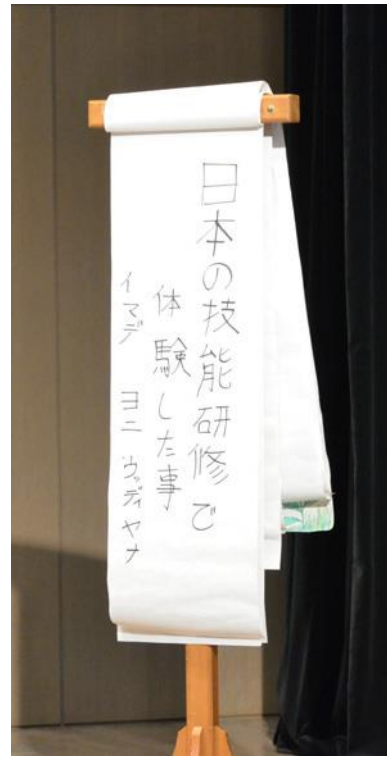 日本の技能研修で
体験した事
イマデ ヨニ ウッディヤナ